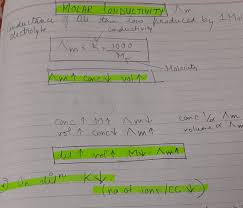 MOLAR CONDUCTIVITY Λm
conductance of all the ions produced by 1 Mole
electrolyte
conductivity
Λm = K × 1000
M
Molarity
Λm↑ conc↓ vol↑
conc ↑ M↑ Λm↓
vol↑ conc↓ Λm↑
dil ↑ vol↑ M↓ Λm↑
K↓
(no of ions / CC ↓)